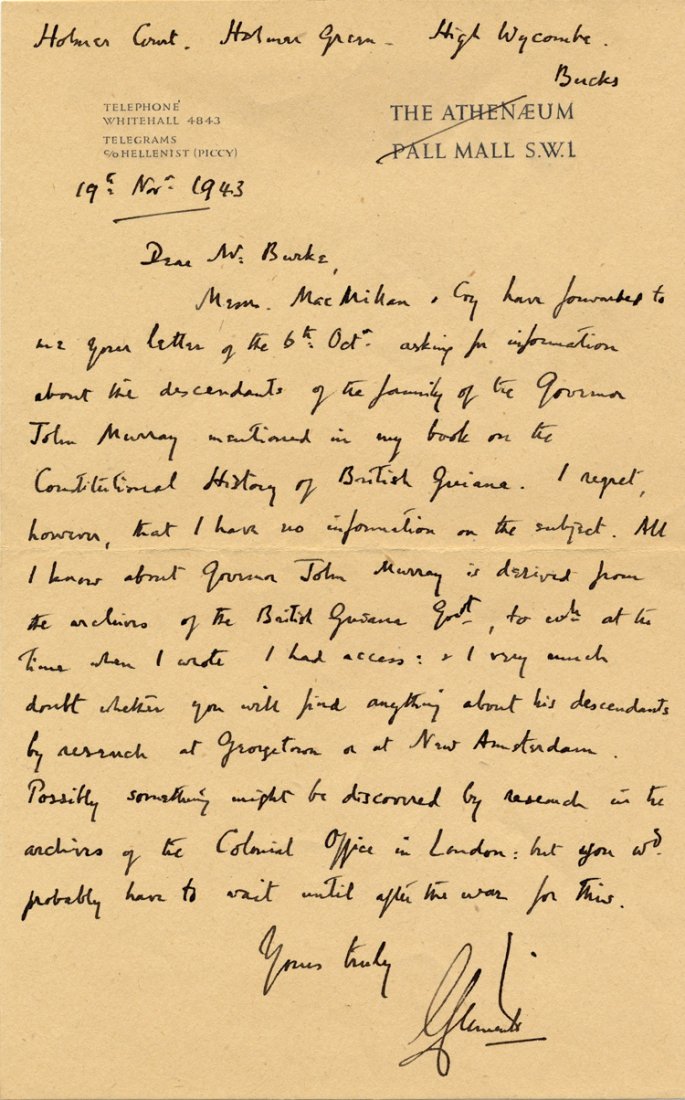 Holmer Court. Holmer Green - High Wycombe.
Bucks
TELEPHONE
WHITEHALL 4843
TELEGRAMS
c/o HELLENIST (PICCY)
THE ATHENÆUM
PALL MALL S.W.1
19th Novr 1943
Dear Mr Burke,
Messrs. MacMillan & Coy have forwarded to
me your letter of the 6th Octr asking for information
about the descendants of the family of the Governor
John Murray mentioned in my book on the
Constitutional History of British Guiana. I regret,
however, that I have no information on the subject. All
I know about Governor John Murray is derived from
the archives of the British Guiana Govt, to wch at the
time when I wrote I had access: & I very much
doubt whether you will find anything about his descendants
by research at Georgetown or at New Amsterdam.
Possibly something might be discovered by research in the
archives of the Colonial Office in London: but you wd
probably have to wait until after the war for this.
Yours truly
Clementi